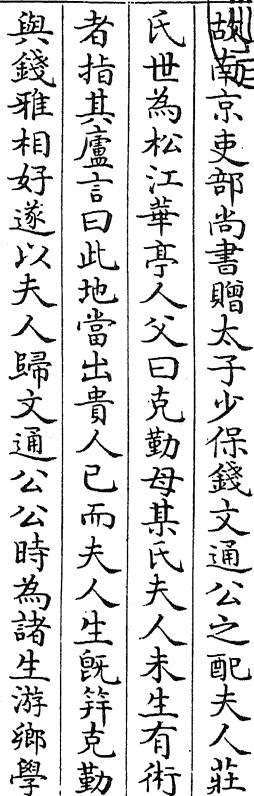 故南京吏部尚書贈太子少保錢文通公之配夫人莊
氏世為松江華亭人父曰克勤母某氏夫人未生有術
者指其廬言曰此地當出貴人已而夫人生旣笄克勤
與錢雅相好遂以夫人歸文通公公時為諸生游鄉學